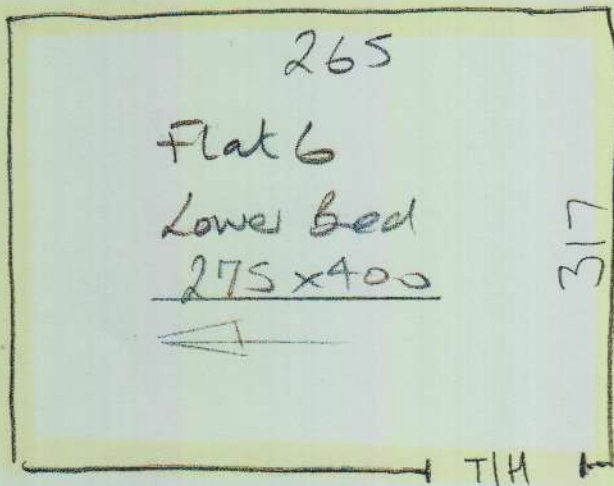 265
Flat 6
Lower Bed
275 x 400
317
T/H